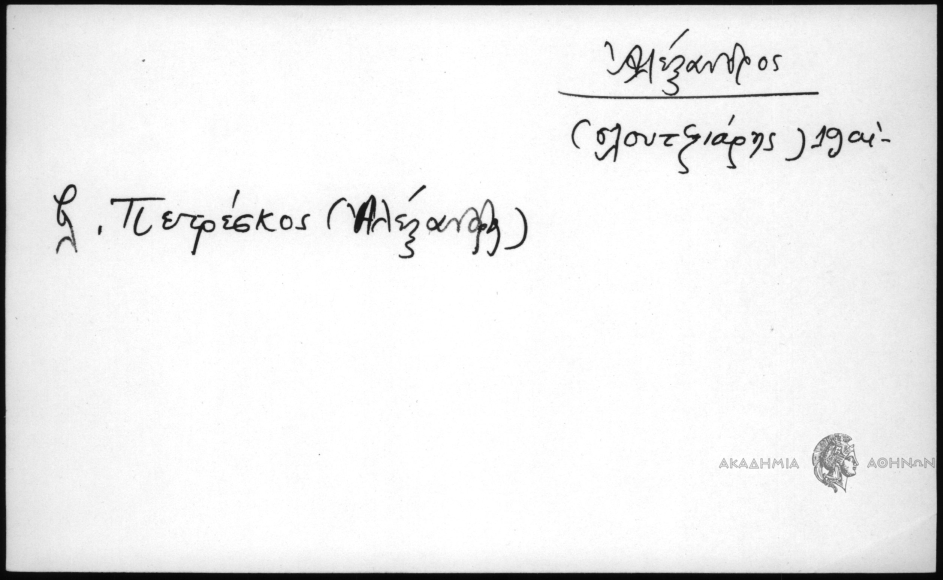 Ἀλέξανδρος
(σλουτζιάρης) 19 αἰ.
βλ. Πετρέσκος (Ἀλέξανδρ.)
ΑΚΑΔΗΜΙΑ ΑΘΗΝΩΝ